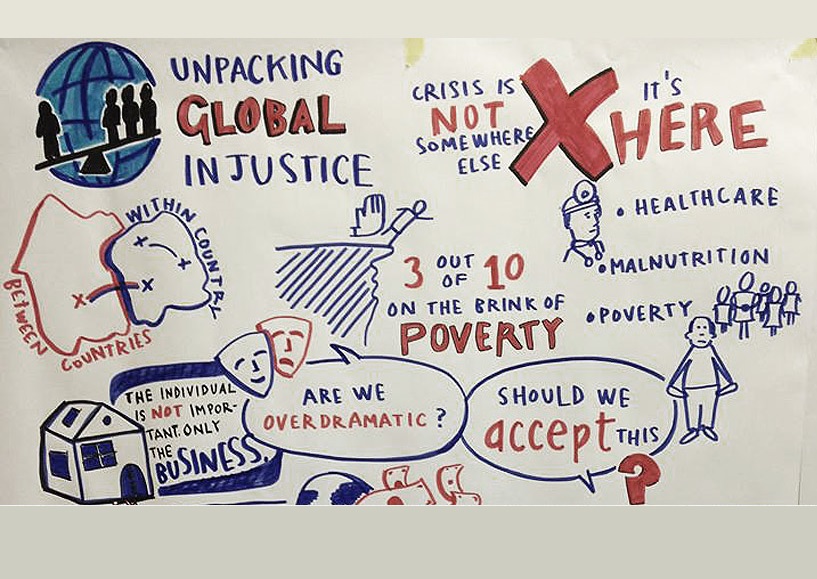 UNPACKING
GLOBAL
INJUSTICE
CRISIS IS
NOT
SOMEWHERE
ELSE
IT'S
HERE
• HEALTHCARE
• MALNUTRITION
• POVERTY
WITHIN COUNTRY
BETWEEN
COUNTRIES
3 OUT OF 10
ON THE BRINK OF
POVERTY
THE INDIVIDUAL
IS NOT IMPOR-
TANT. ONLY
THE
BUSINESS.
ARE WE
OVERDRAMATIC ?
SHOULD WE
accept THIS
?